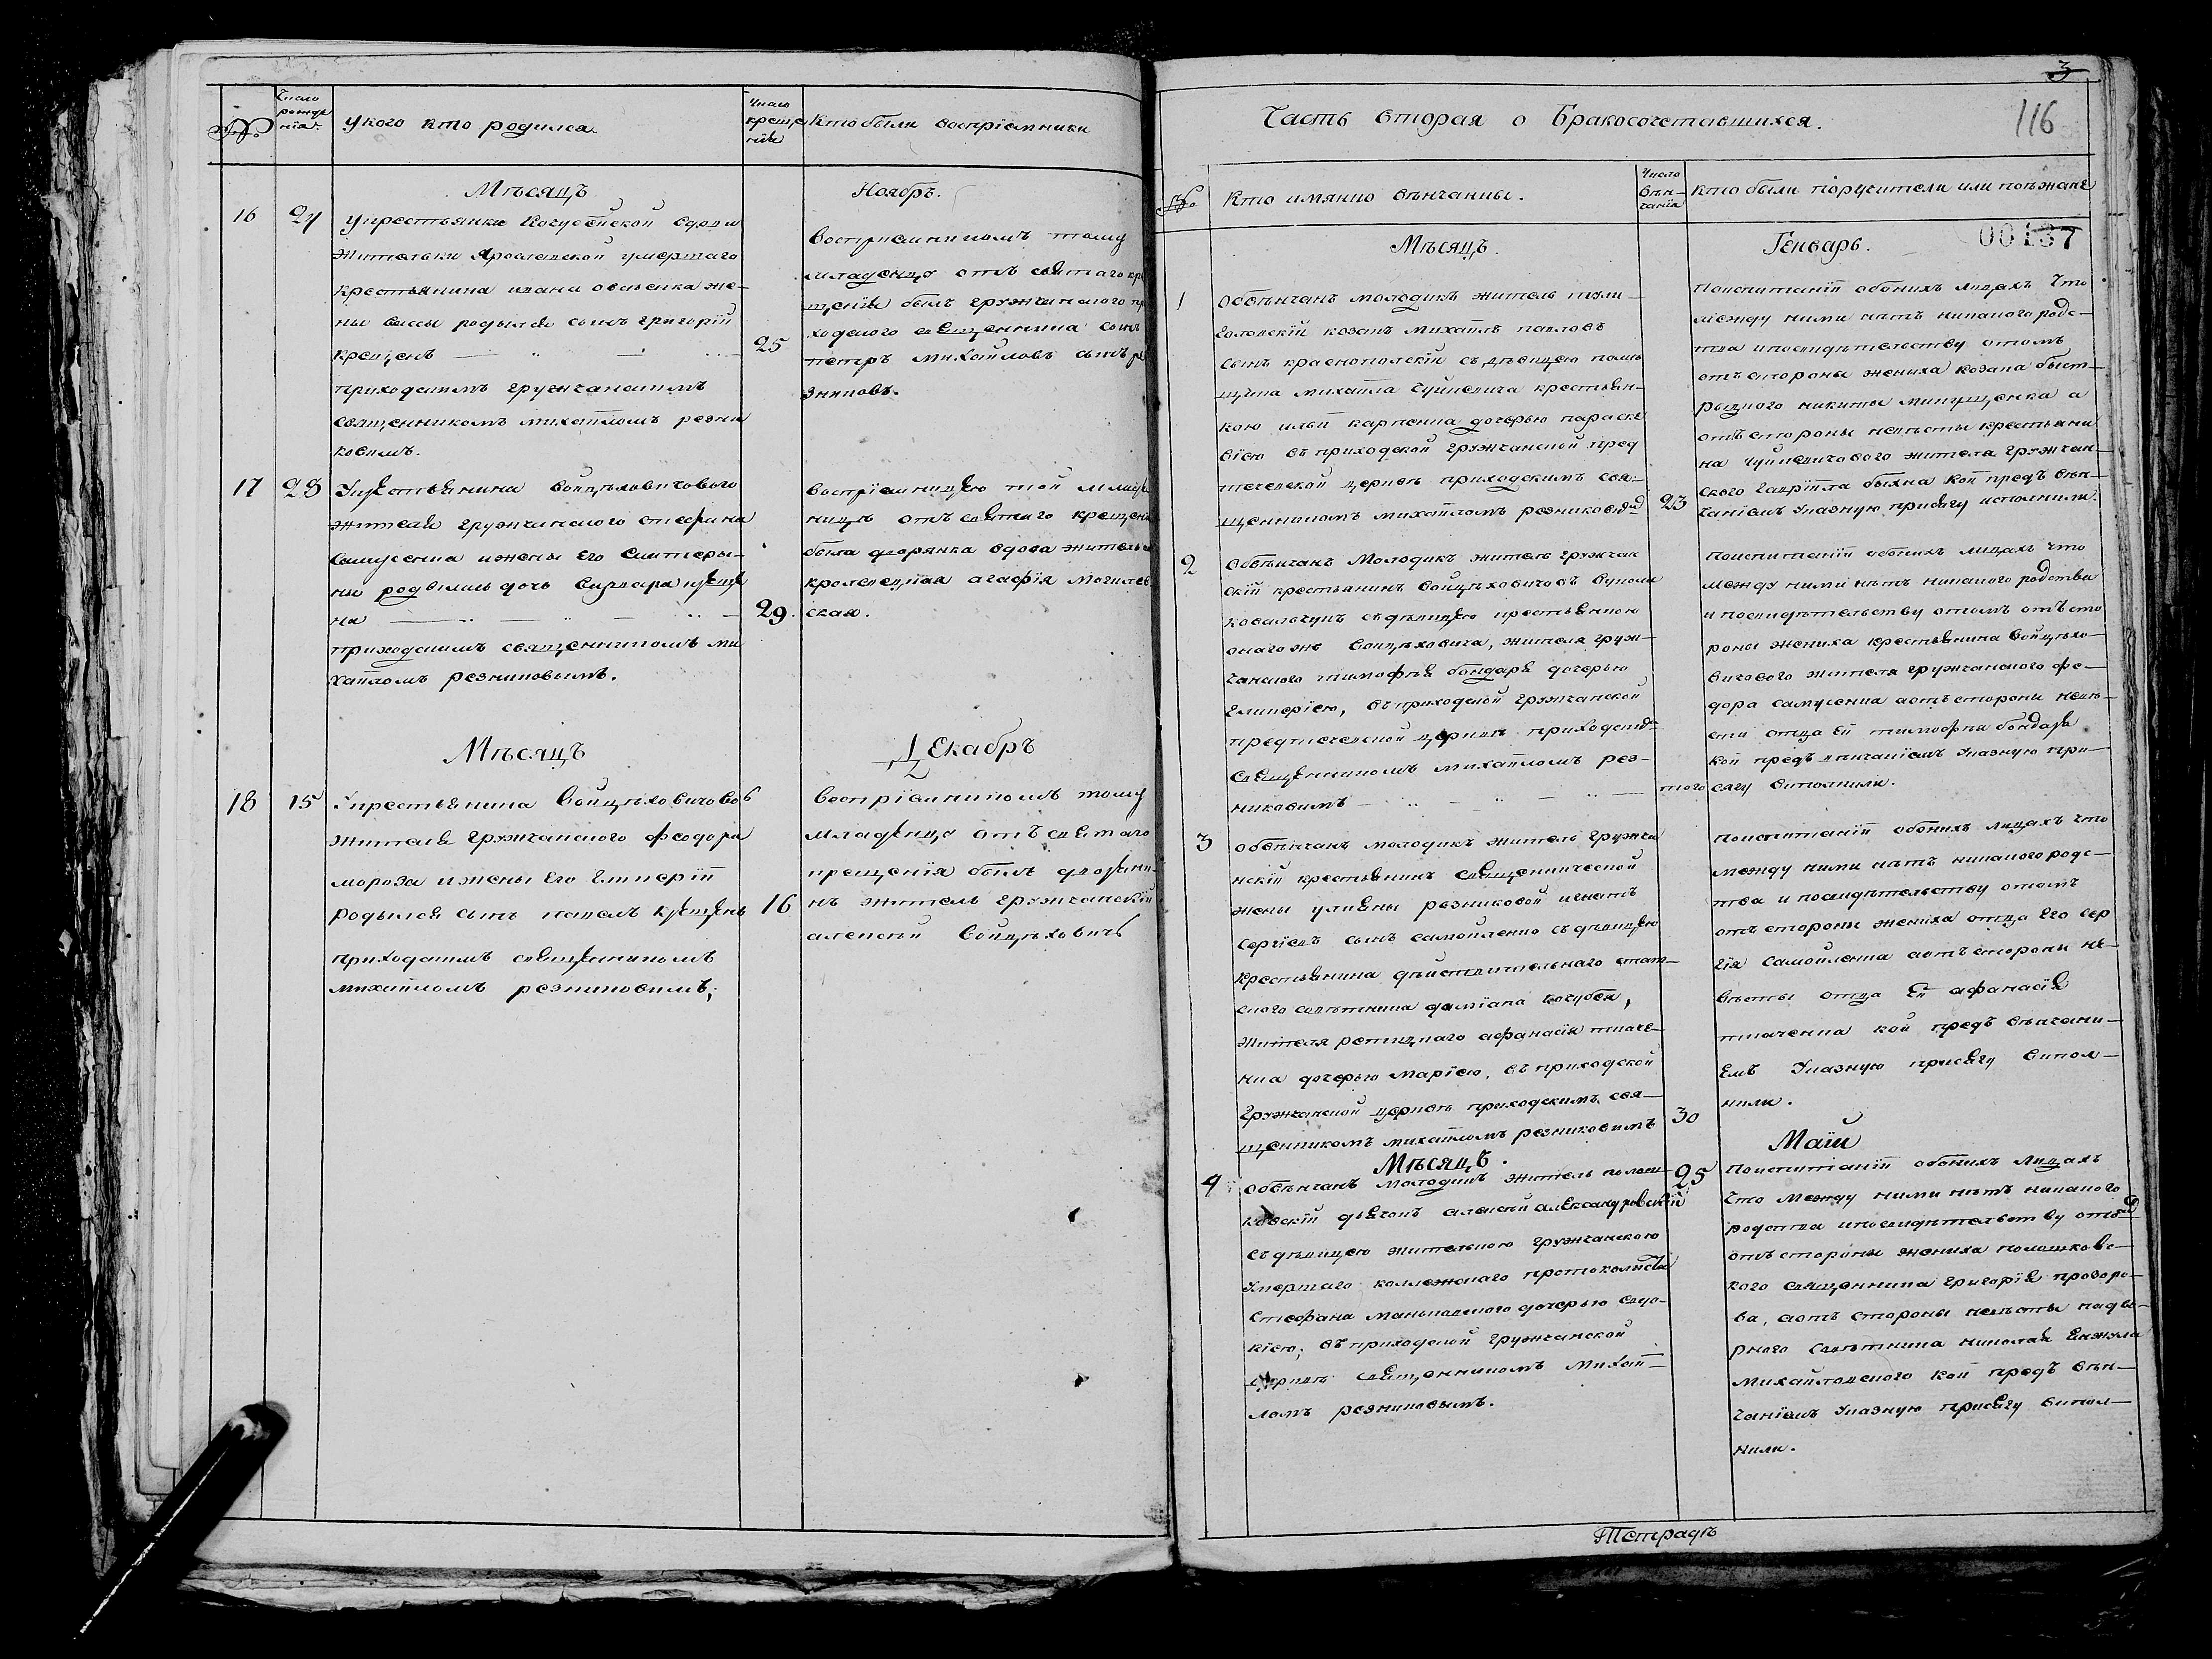 Число
рожде
нія.
№
у кого кто родился.
Число
креще
нія
Кто были воспріємники
Мѣсяцъ
Ноябръ.
16
24
у крестьянки Кочубейской вдови
жительки Ярославской умершаго
крестьянина ивана овсіенка же-
ны вассы родился сынъ григорій
крещенъ
25
приходскимъ грузчанскимъ
священникомъ михаиломъ резни
ковимъ.
воспріемникомъ тому
младенцу отъ святаго кре
щенія былъ грузчанского при
ходского священника сынъ
петръ михайловъ сынъ ре
зниковъ.
17
28
У крестьянина войцѣховичового
жителя грузчанского стефана
самусенка и жены Его Екатеры-
ны родилась дочь Варвара креще
на
29.
приходскимъ священникомъ ми
хаиломъ резниковымъ.
воспріемницею той млади
ницѣ отъ святаго крещен
была дворянка вдова житель
кролевецкая агафія могилев
ская.
Мѣсяцъ
Декабръ
18
15
У крестьянина Войцѣховичов
жителя грузчанского феодора
мороза и жены Его Гликеріи
родылся сынъ павелъ крещенъ
16
приходскимъ священникомъ
михаиломъ резниковимъ,
воспріемникомъ тому
младенцу отъ святаго
крещенія былъ дворяни
нъ житель грузчанскій
алексѣй Войцѣховичъ
3
116
Часть вторая о Бракосочетавшихся.
№
Кто имянно вѣнчанны.
Число
вѣн-
чанія
Кто были поручители или поѣжанѣ
00137
Мѣсяцъ
Генварь.
1
обвѣнчанъ молодикъ житель тули-
головскій козакъ михаилъ павловъ
сынъ краснопольскій съ дѣвицею помѣ
щика михаила чуйкевича крестьян-
кою ильи карпенка дочерью параске
вією въ приходской грузчанской пред
течевской церквѣ приходскимъ свя-
щенникомъ михаиломъ резниковим
23
По испитаніи обоихъ лицахъ что
между ними нѣтъ никакого родс-
тва и по свидѣтельству о томъ
отъ стороны жениха козака быст-
рыцкого никиты миргущенка а
отъ стороны невѣсты крестьяни
на чуйкевичового жителя грузчан-
ского гавріила быкна кой предъ вѣн-
чаніемъ указную присягу исполнили.
2
Обвѣнчанъ Молодикъ житель грузчан
скій крестьянинъ Войцѣховичовъ
ковальчукъ съ дѣвицею крестьянкою
онаго же Войцѣховича, жителя груз-
чанского тимофѣя бондаря дочерью
Гликерією, въ приходской грузчанской
предтечевской церквѣ приходским
Священникомъ михаиломъ рез-
никовимъ
того
По испитаніи обоихъ лицахъ что
между ними нѣтъ никакого родства
и по свидѣтельству о томъ отъ сто
роны жениха крестьянина Войцѣхо-
вичового жителя грузчанского фе-
дора самусенка а отъ стороны невѣ-
сти отца Ей тимофѣя бондаря
кой предъ вѣнчаніемъ Указную при-
сягу виполнили.
3
обвѣнчанъ молодикъ житель Грузча
нскій крестьянинъ священнической
жены ульяны резниковой игнатъ
сергіевъ сынъ самойленко съ дѣвицею
крестьянина дѣйствительнаго стат-
ского совѣтника даміана Кочубея,
жителя ретицкаго афанасія ткаче-
нка дочерью Марією, въ приходской
Грузчанской церквѣ приходскимъ свя-
щенникомъ михаиломъ резниковимъ
30
По испитаніи обоихъ лицахъ что
между ними нѣтъ никакого родс-
тва и по свидѣтельству о томъ
отъ стороны жениха отца Его сер
гія Самойленка а отъ стороны не-
вѣсты отца Ей афанасія
ткаченка кой предъ вѣнчани-
Емъ Указную присягу випол-
нили.
Мѣсяцъ.
Маій
4
Обвѣнчанъ молодикъ житель полош-
ковскій дьячокъ алексѣй Александровскій
25
съ дѣвицею жителькою грузчанскою
Умершаго коллежскаго протоколиста
Стефана Маньковского дочерью Евдо-
кією, въ приходской грузчанской
церквѣ священникомъ Михаи-
ломъ резниковымъ.
По испитаніи обоихъ Лицахъ
что между ними нѣтъ никакого
родства и по свидѣтельству о том
отъ стороны жениха полошковс-
кого священника григорія прозоро-
ва, а отъ стороны невѣсты надво-
рного Совѣтника николая Екжула
Михайловского кой предъ вѣн-
чаніемъ Указную присягу випол-
нили.
Тетрадь